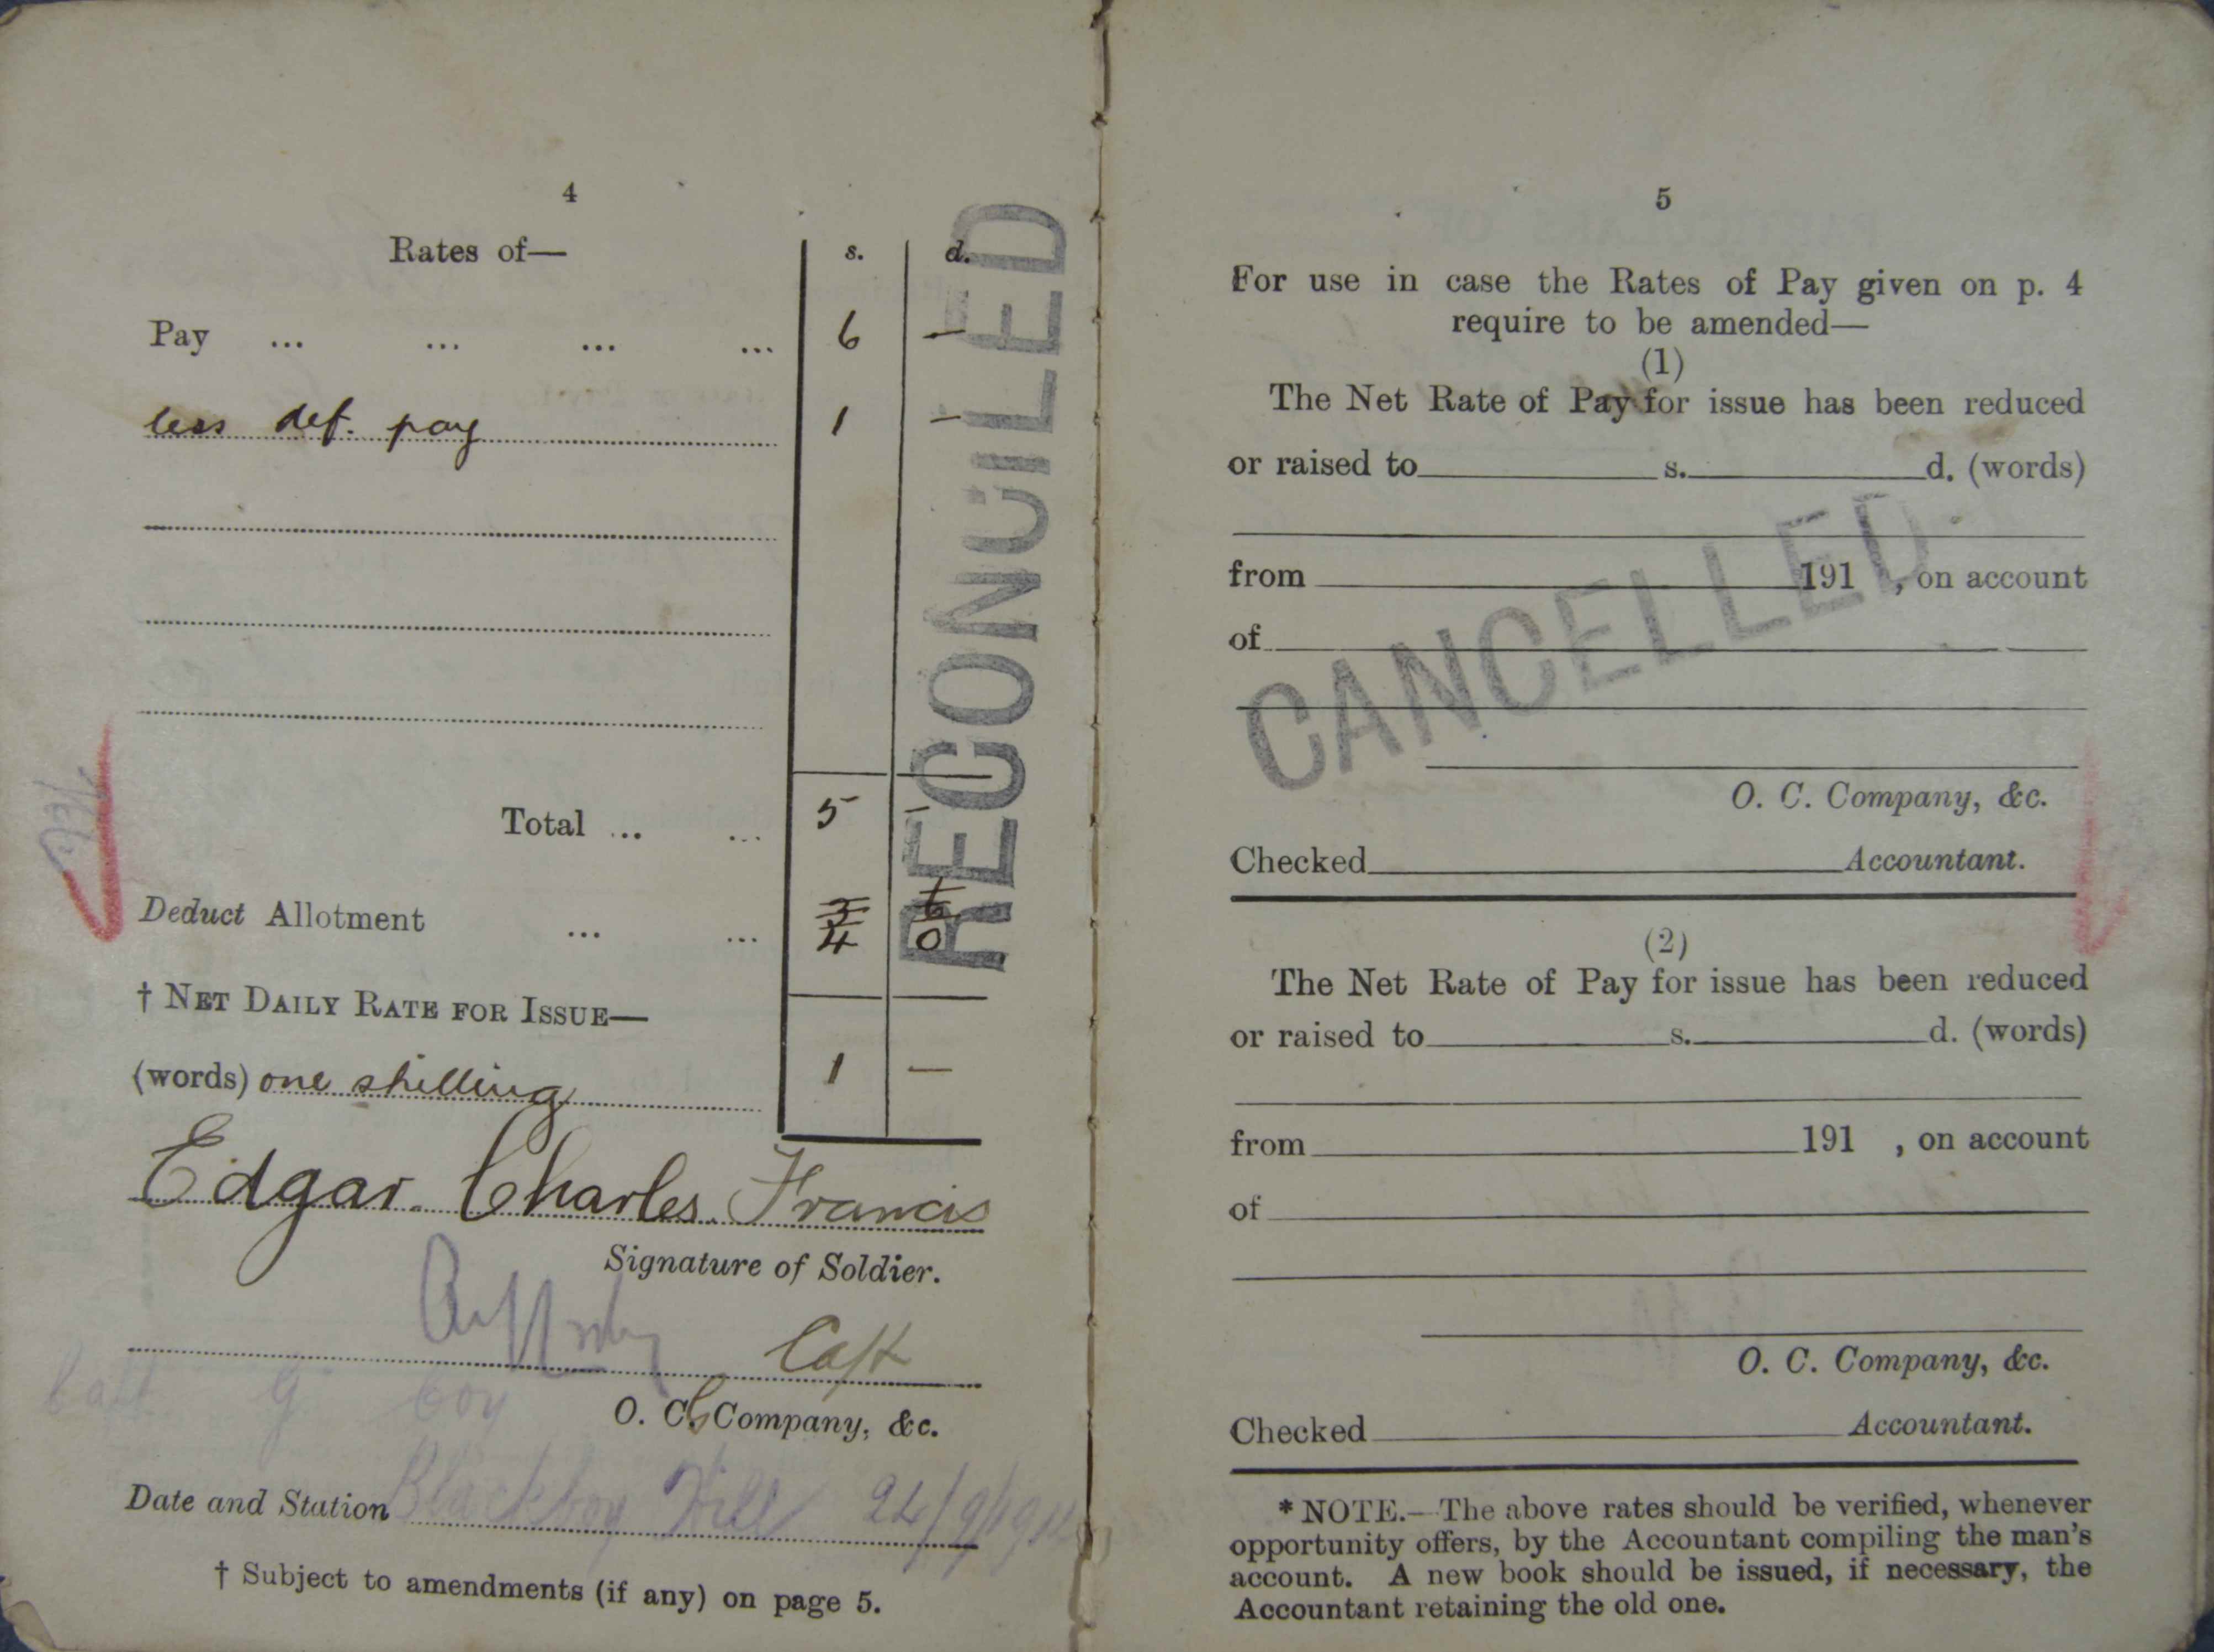 4
Rates of— s. d.
Pay ... ... ... ... 6 —
less def. pay 1 —
Total ... ... 5 —
Deduct Allotment ... ... 3 6
4 0
† NET DAILY RATE FOR ISSUE—
(words) one shilling 1 —
Edgar. Charles. Francis
Signature of Soldier.
Capt
O. C. Company, &c.
G Coy
Date and Station Blackboy Hill 24/9/1914
† Subject to amendments (if any) on page 5.
RECONCILED
5
For use in case the Rates of Pay given on p. 4
require to be amended—
(1)
The Net Rate of Pay for issue has been reduced
or raised to s. d. (words)
from 191 , on account
of
CANCELLED
O. C. Company, &c.
Checked Accountant.
(2)
The Net Rate of Pay for issue has been reduced
or raised to s. d. (words)
from 191 , on account
of
O. C. Company, &c.
Checked Accountant.
* NOTE.—The above rates should be verified, whenever
opportunity offers, by the Accountant compiling the man's
account. A new book should be issued, if necessary, the
Accountant retaining the old one.